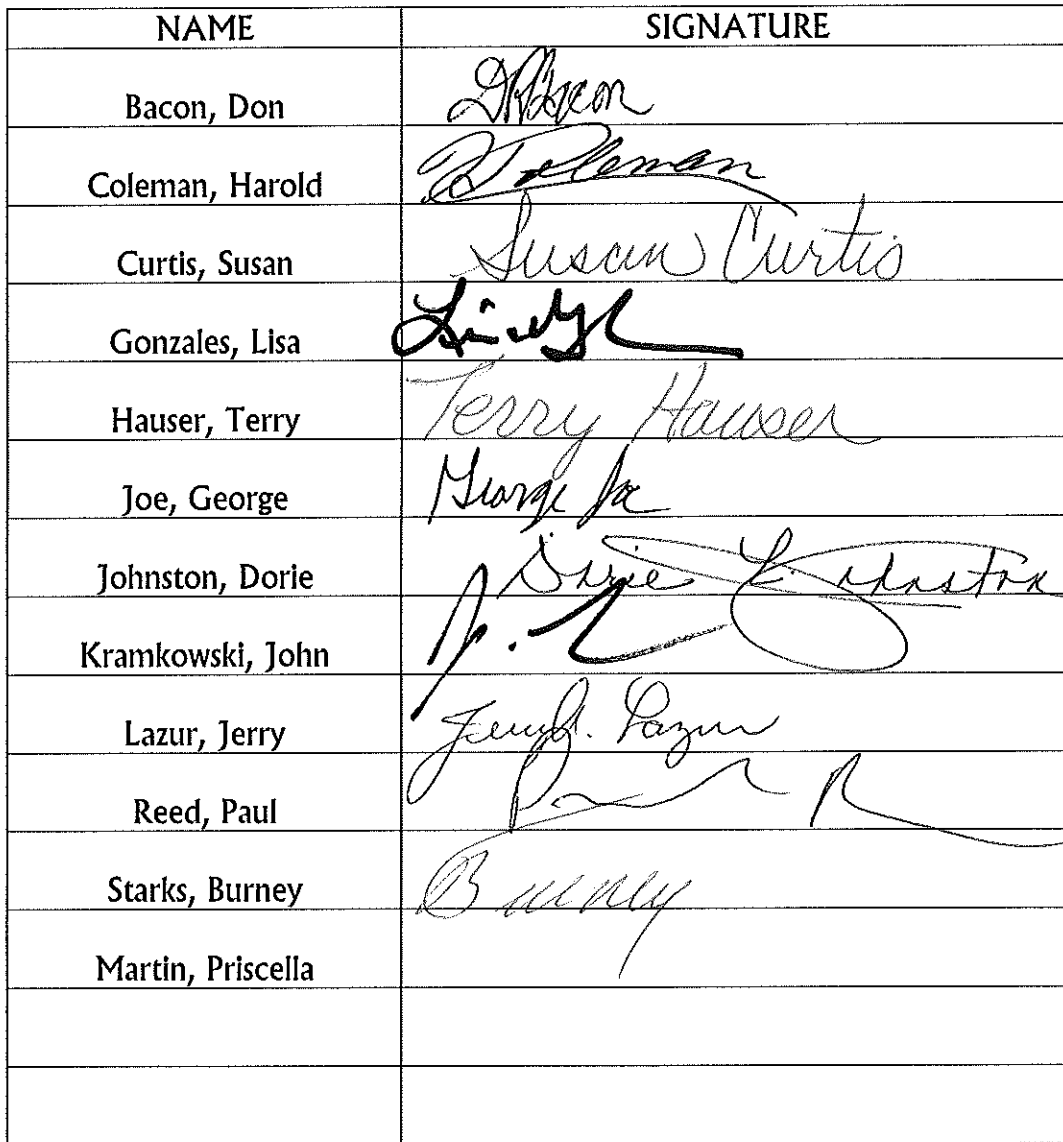 NAME SIGNATURE
Bacon, Don DRBacon
Coleman, Harold H Coleman
Curtis, Susan Susan Curtis
Gonzales, Lisa
Hauser, Terry Terry Hauser
Joe, George George Joe
Johnston, Dorie Dorie L. Johnston
Kramkowski, John
Lazur, Jerry Jerry J. Lazur
Reed, Paul
Starks, Burney Burney
Martin, Priscella